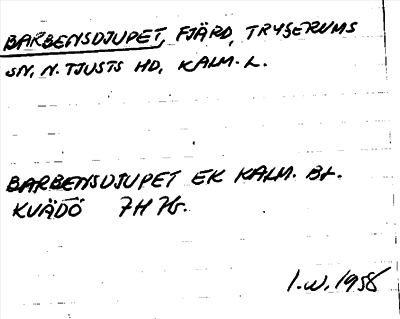 BARBENSDJUPET, FJÄRD, TRYSERUMS
SN, N. TJUSTS HD, KALM. L.
BARBENSDJUPET EK KALM. Bl.
KVÄDÖ 7H 7G.
I.W. 1958